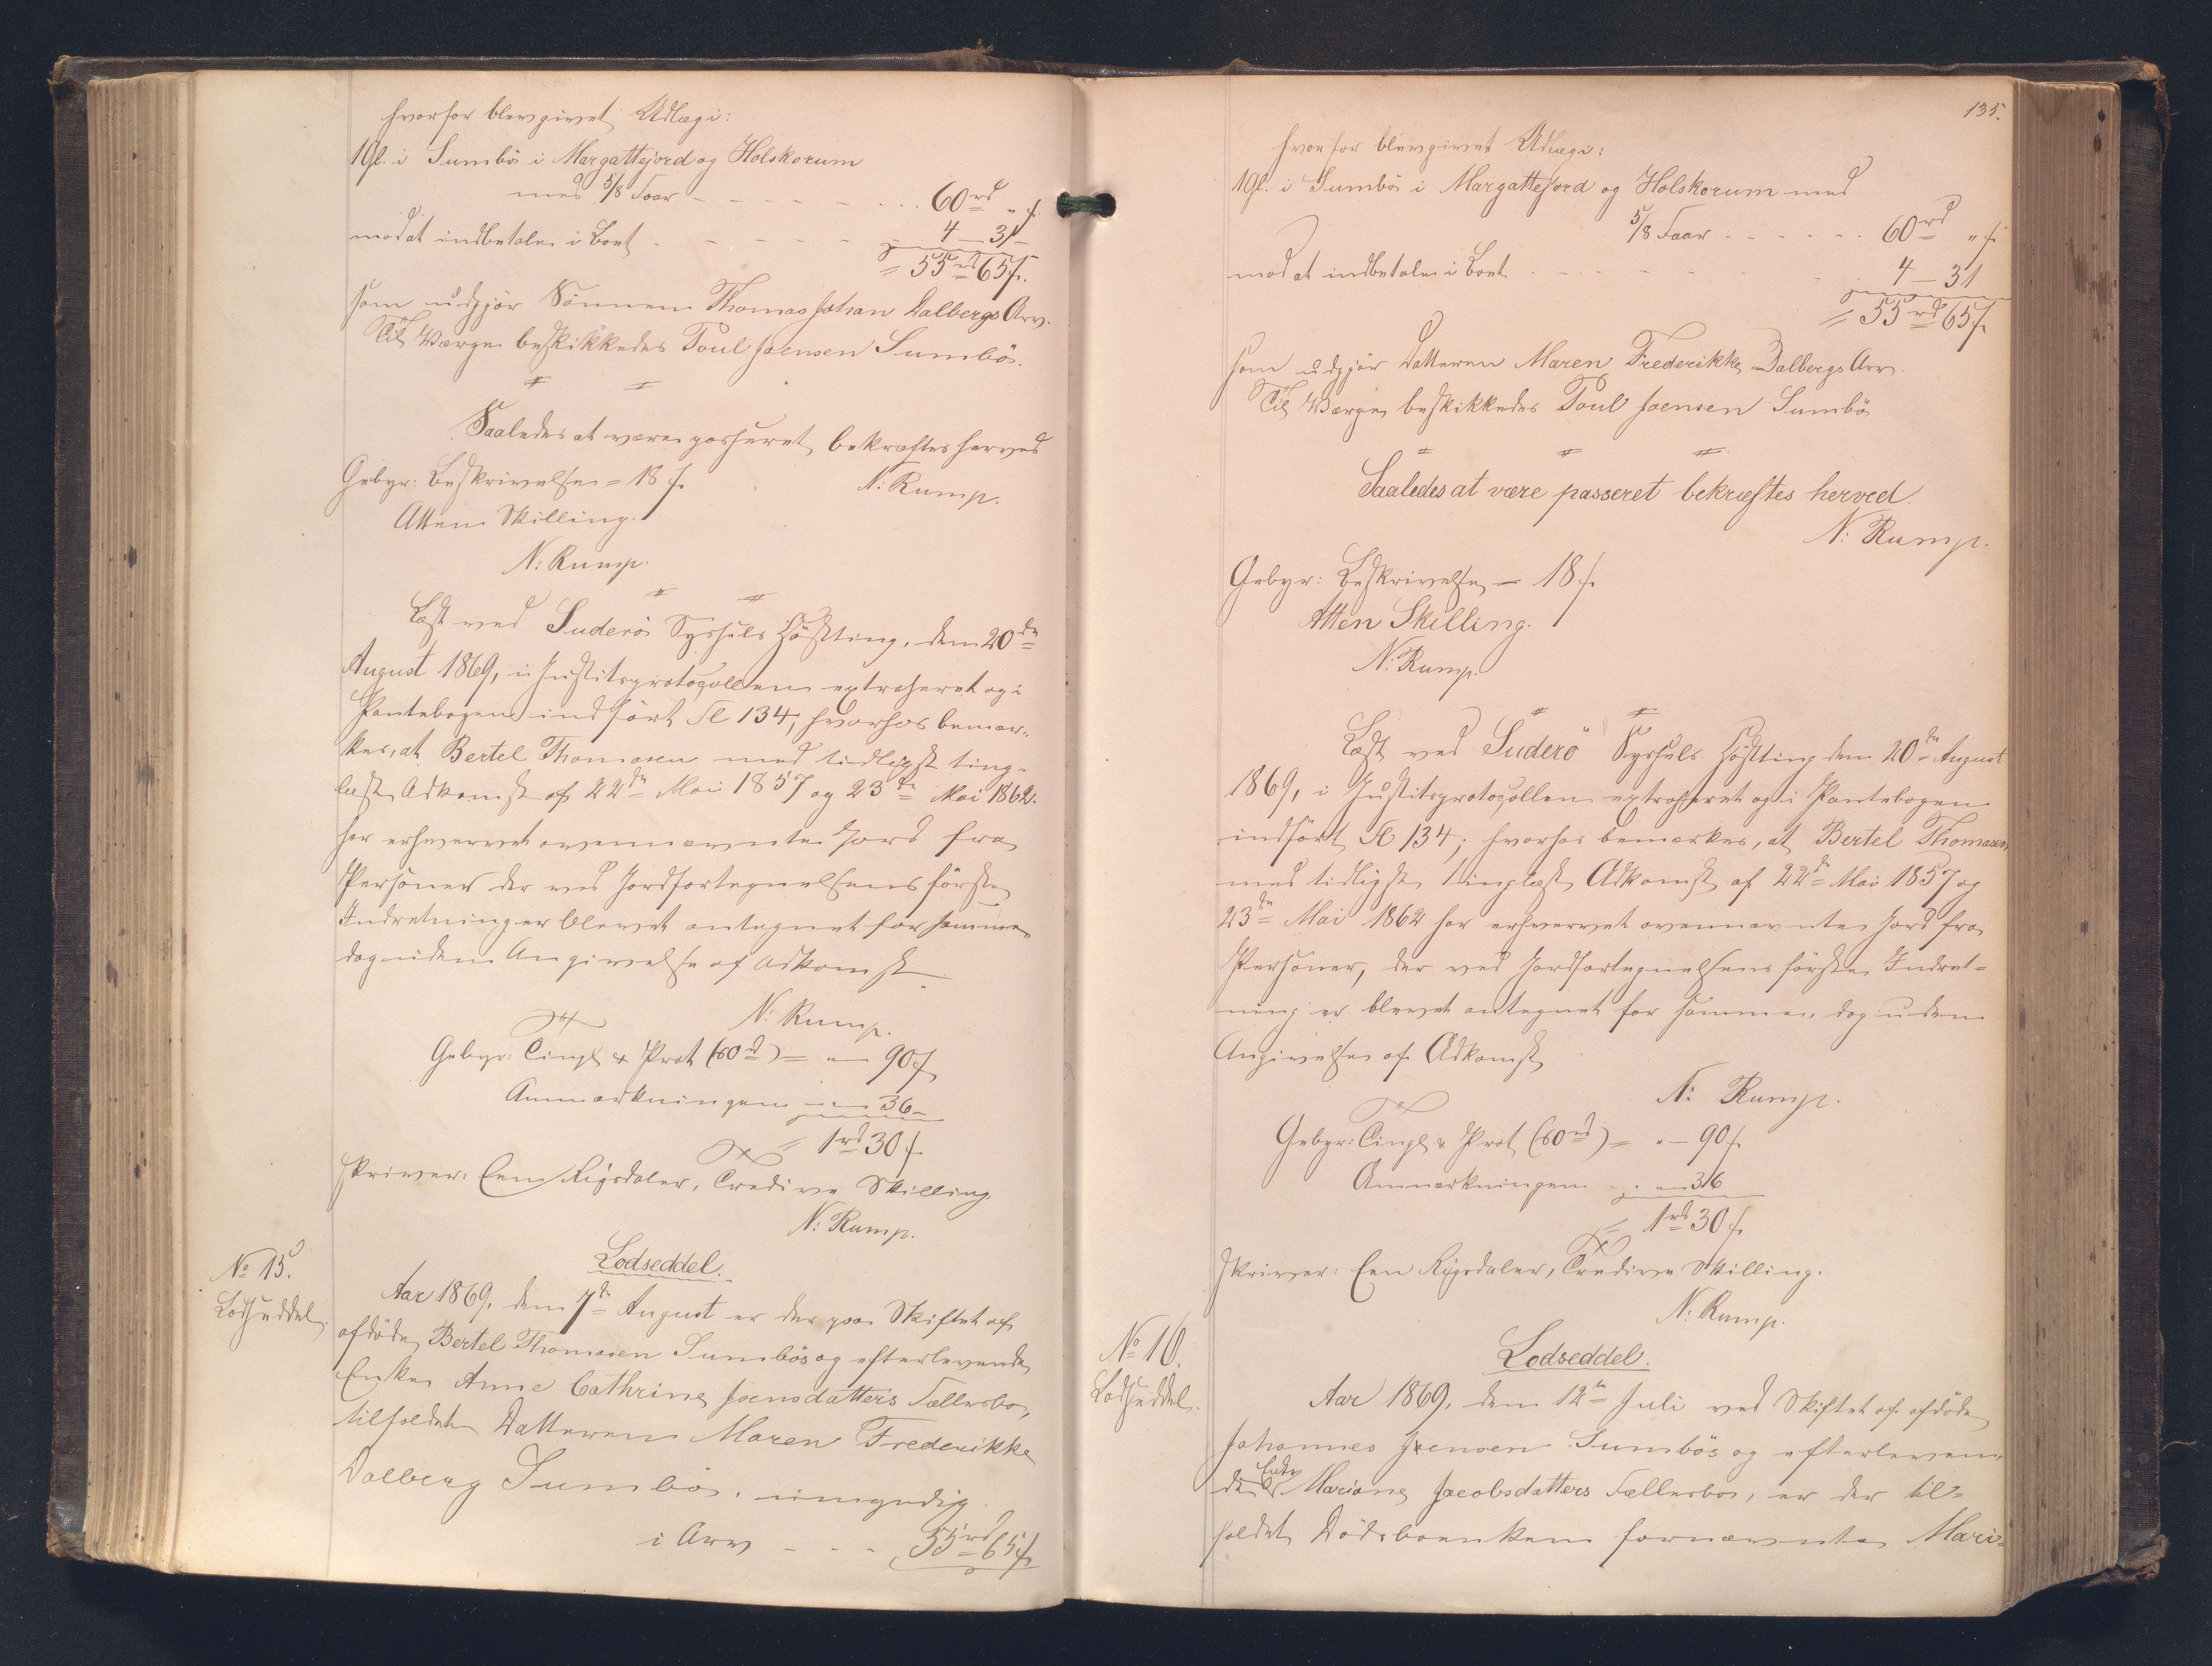 hvorfor blev givet Udlæg i:
1 Gl. i Sumbö i Margattejord og Holskorum
med 5/8 Faar - - - - - - - 60 rd " ſ.
mod at indbetale i Boet - - - - - - 4 — 31 -
= 55 rd 65 ſ.
som udgjør Sönnen Thomas Johan Dalbergs Arv.
Til Værge beskikkedes Poul Joensen Sumbö.
Saaledes at være passeret bekræftes herved
N: Rump.
Gebyr: Beskrivelse = 18 ſ.
Atten Skilling.
N: Rump.
Læst ved Suderö Syssels Höstting, den 20de
August 1869, i Justitsprotocollen extraheret og i
Pantebogen indfört Fl 134; hvorhos bemær-
kes, at Bertel Thomasen med tidligst ting-
læst Adkomst af 22de Mai 1857 og 23de Mai 1862.
har erhvervet ovennævnte Jord fra
Personer der ved Jordfortegnelsens förste
Indretning er blevet antegnet for samme
dog uden Angivelse af Adkomst
N: Rump.
Gebyr: Tingl & Prot (60 rd) = " — 90 ſ
Anmærkningen " — 36 -
= 1 rd 30 ſ.
skriver: Een Rigsdaler, Tredive Skilling.
N: Rump.
No 15.
Lodseddel.
Lodseddel.
Aar 1869, den 7de August er der paa Skiftet af
afdöde Bertel Thomasen Sumbös og efterlevende
Enke Anne Cathrine Joensdatters Fællesbo,
tilfaldet Datteren Maren Frederikke
Dalberg Sumbö, umyndig
i Arv - - - 55 rd 65 ſ
135.
hvorfor blev givet Udlæg i:
1 Gl. i Sumbö i Margattejord og Holskorum med
5/8 Faar - - - - - - 60 rd " ſ.
mod at indbetale i Boet - - - - - - 4 — 31
= 55 rd 65 ſ.
som udgjør Datteren Maren Frederikke Dalbergs Arv.
Til Værge beskikkedes Poul Joensen Sumbö
Saaledes at være passeret bekræftes herved.
N: Rump.
Gebyr: Beskrivelse — 18 ſ.
Atten Skilling.
N: Rump.
Læst ved Suderö Syssels Höstting den 20de August
1869, i Justitsprotocollen extraheret og i Pantebogen
indfört Fl 134; hvorhos bemærkes, at Bertel Thomasen
med tidligste tinglæst Adkomst af 22de Mai 1857 og
23de Mai 1862 har erhvervet ovennævnte Jord fra
Personer, der ved Jordfortegnelsens förste Indret-
ning er blevet antegnet for samme, dog uden
Angivelse af Adkomst
N: Rump.
Gebyr: Tingl & Prot (60 rd) = " — 90 ſ.
Anmærkningen " — 36
= 1 rd 30 ſ.
skriver: Een Rigsdaler, Tredive Skilling.
N: Rump.
No 16.
Lodseddel.
Lodseddel.
Aar 1869, den 12te Juli ved Skiftet af afdöde
Johannes Joensen Sumbös og efterleven-
de Enke Mariane Jacobsdatters Fællesbo, er der til-
faldet Dödsboenken fornævnte Mari-